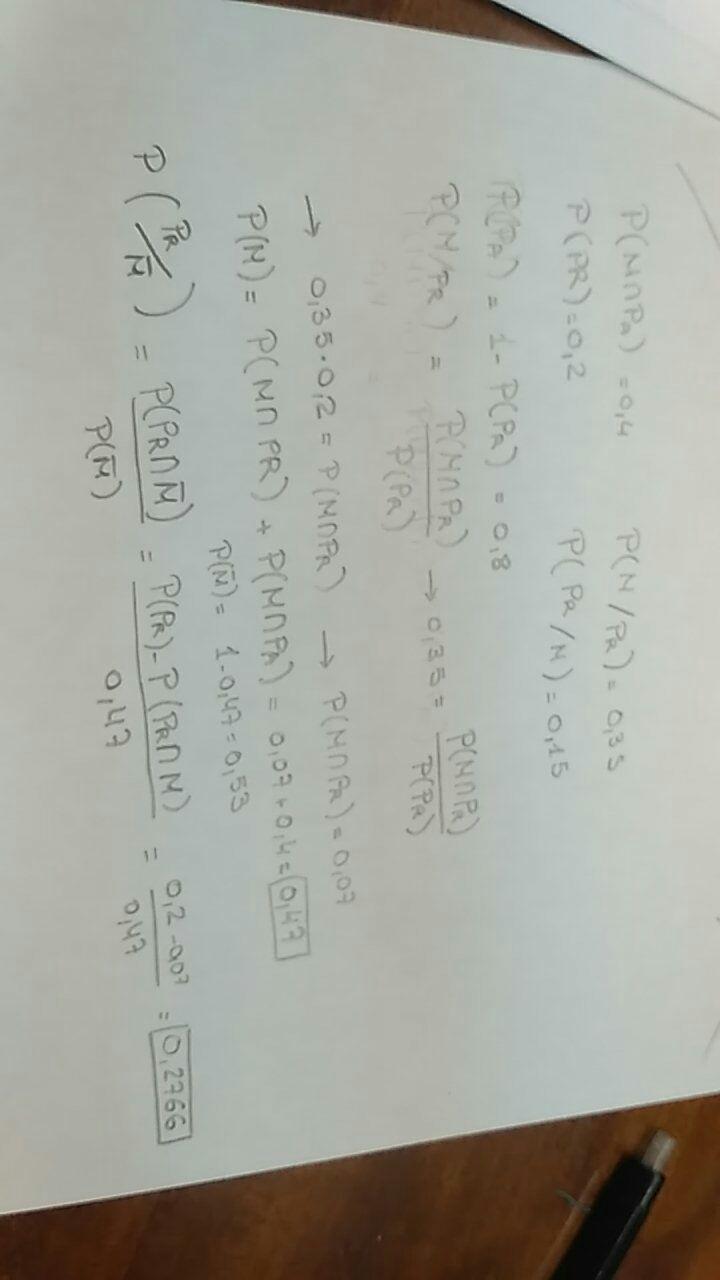 P(M∩PA) = 0,4 P(M/PR) = 0,35
P(PR) = 0,2 P(PR/M) = 0,15
P(PA) = 1 - P(PR) = 0,8
P(M/PR) = P(M∩PR) / P(PR) → 0,35 = P(M∩PR) / P(PR)
→ 0,35 · 0,2 = P(M∩PR) → P(M∩PR) = 0,07
P(M) = P(M∩PR) + P(M∩PA) = 0,07 + 0,4 = 0,47
P(M̅) = 1 - 0,47 = 0,53
P(PR/M̅) = P(PR∩M̅) / P(M̅) = P(PR) - P(PR∩M) / 0,47 = 0,2 - 0,07 / 0,47 = 0,2766